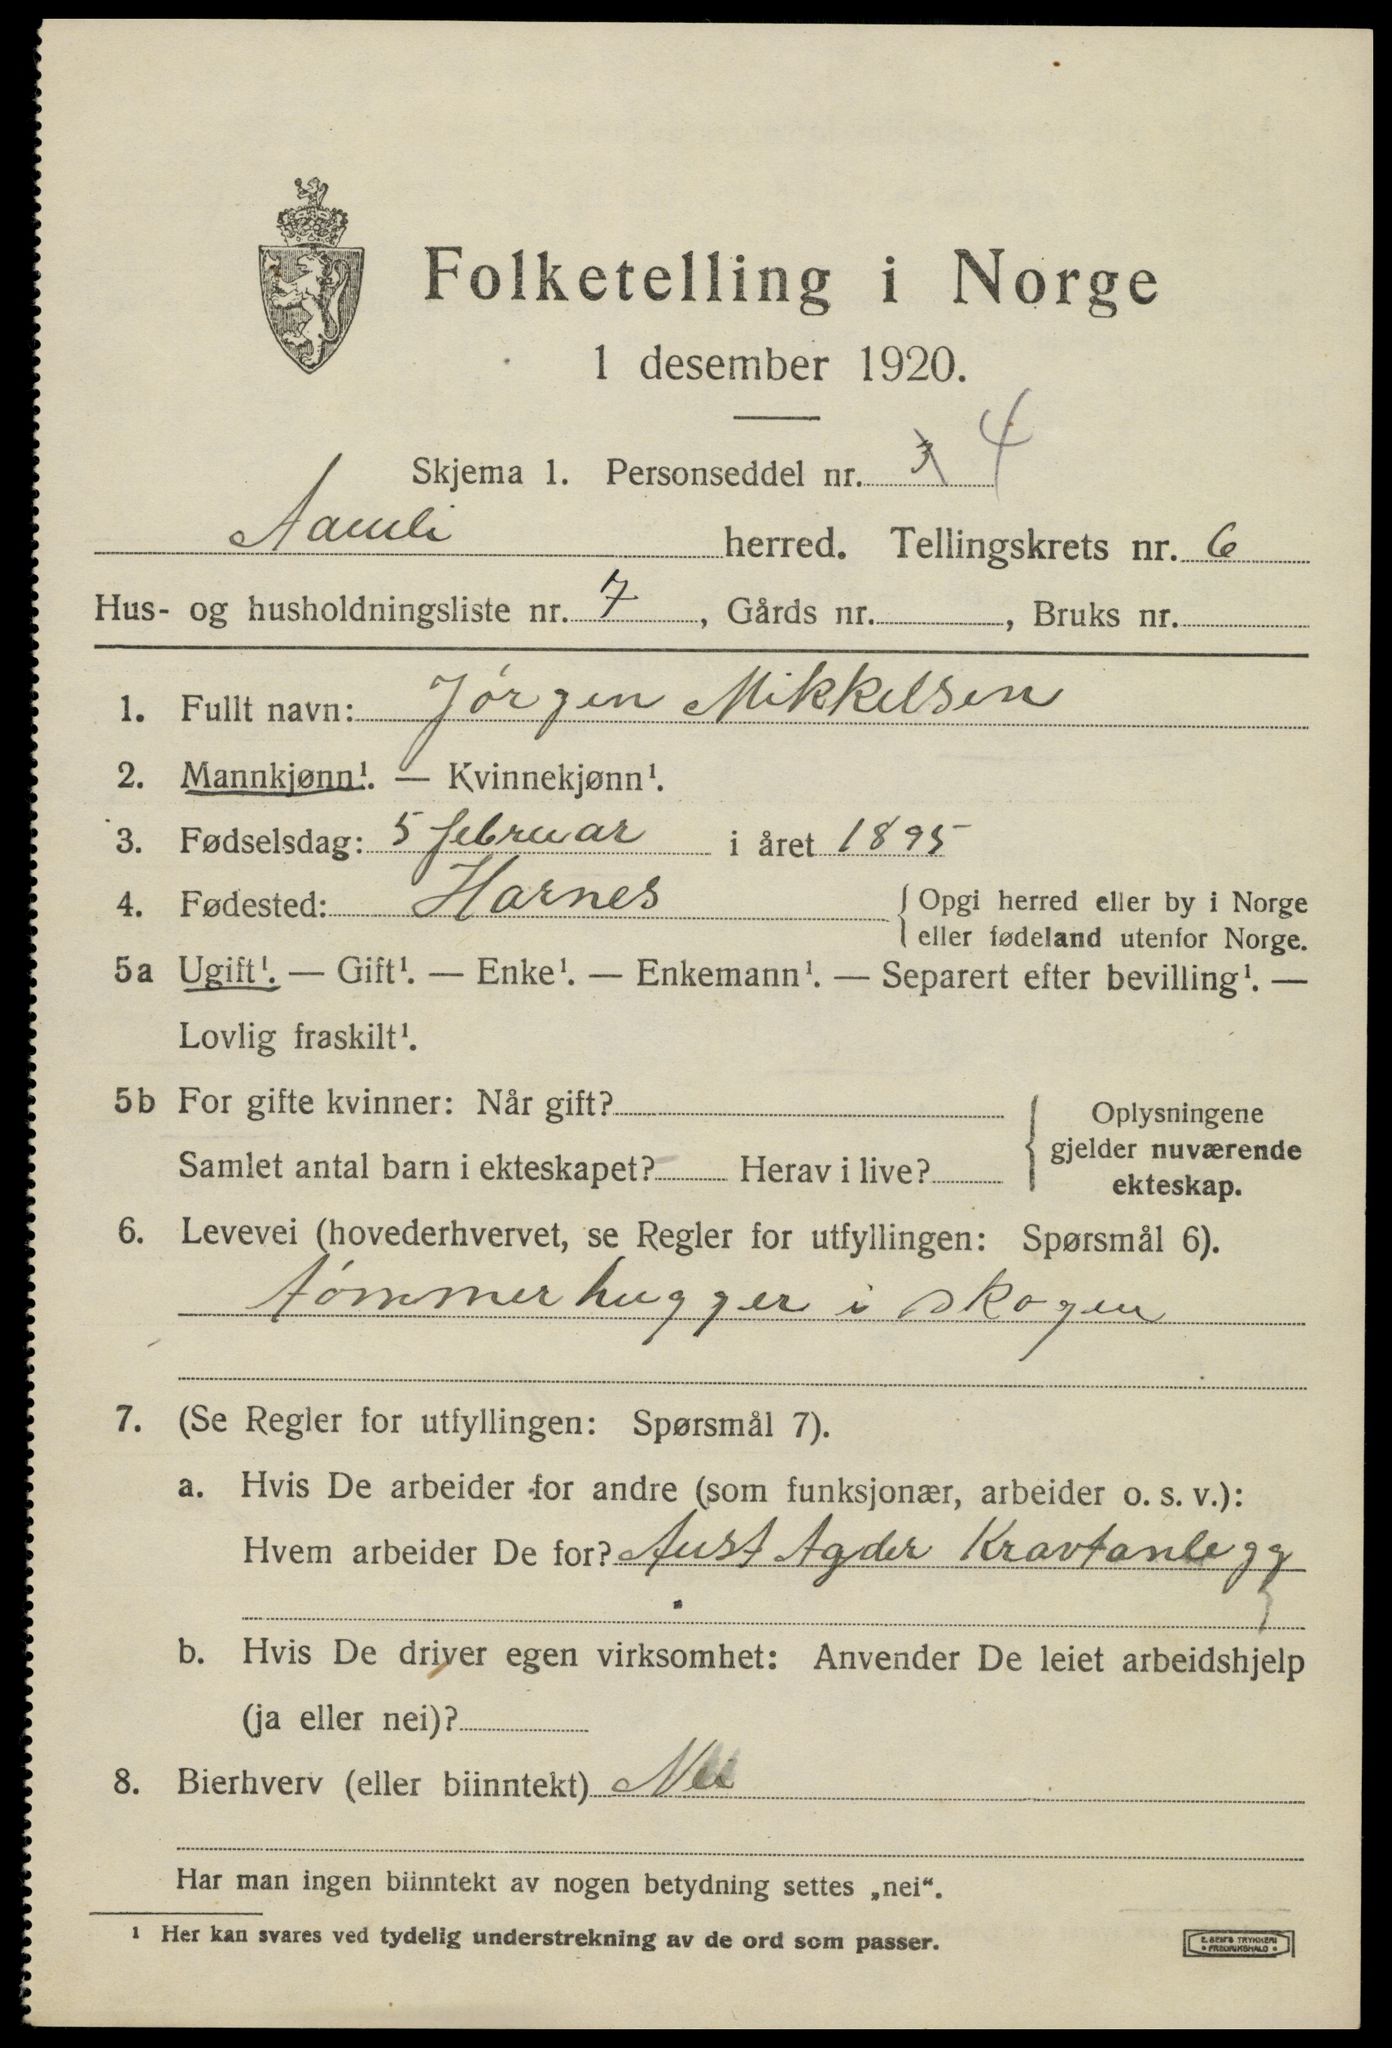 Folketelling i Norge
1 desember 1920.
Skjema 1. Personseddel nr. 3 4
Aamli herred. Tellingskrets nr. 6
Hus- og husholdningsliste nr. 7, Gårds nr. , Bruks nr.
1. Fullt navn: Jørgen Mikkelsen
2. Mannkjønn¹. — Kvinnekjønn¹.
3. Fødselsdag: 5 februar i året 1895
4. Fødested: Harnes { Opgi herred eller by i Norge
eller fødeland utenfor Norge.
5a Ugift¹. — Gift¹. — Enke¹. — Enkemann¹. — Separert efter bevilling¹. —
Lovlig fraskilt¹.
5b For gifte kvinner: Når gift?
Samlet antal barn i ekteskapet? Herav i live?
{ Oplysningene
gjelder nuværende
ekteskap.
6. Levevei (hovederhvervet, se Regler for utfyllingen: Spørsmål 6).
tømmerhugger i skogen
7. (Se Regler for utfyllingen: Spørsmål 7).
a. Hvis De arbeider for andre (som funksjonær, arbeider o. s. v.):
Hvem arbeider De for? Aust Agder Kravtanlegg
b. Hvis De driver egen virksomhet: Anvender De leiet arbeidshjelp
(ja eller nei)?
8. Bierhverv (eller biinntekt) Nei
Har man ingen biinntekt av nogen betydning settes „nei“.
¹ Her kan svares ved tydelig understrekning av de ord som passer.
E. SEM'S TRYKKERI
• FREDRIKSHALD •